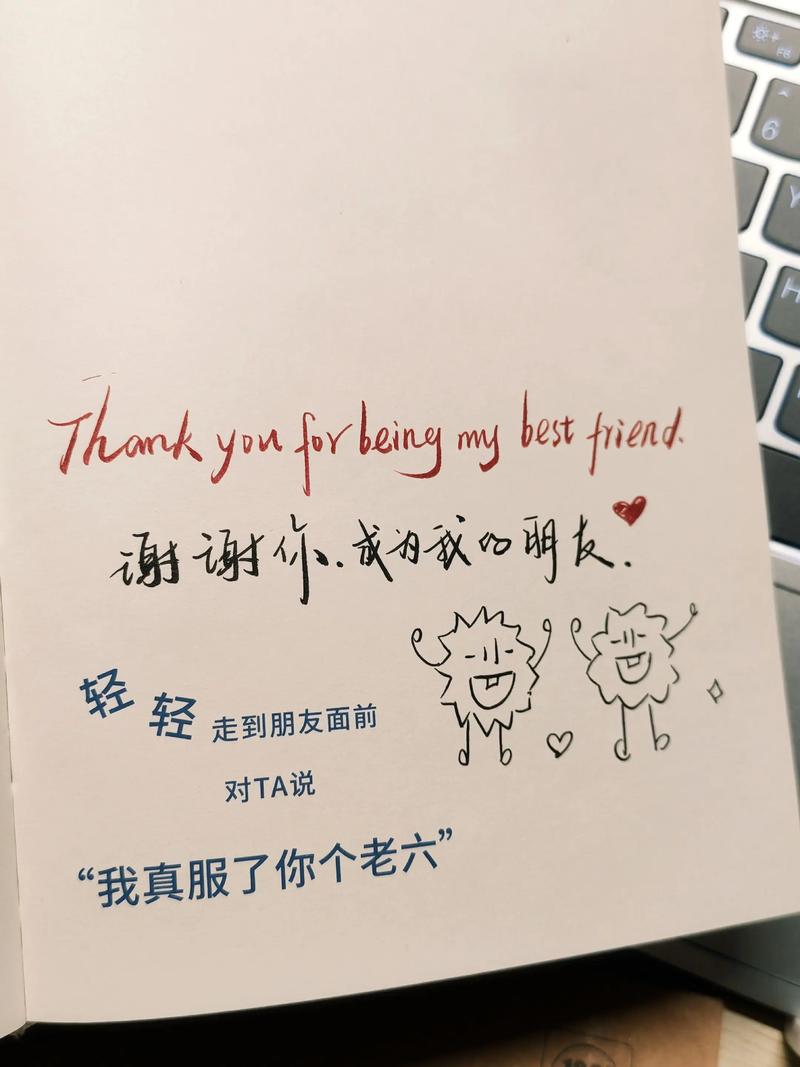 Thank you for being my best friend.
谢谢你.成为我的朋友.
轻轻走到朋友面前
对TA说
“我真服了你个老六”
6
Y
H